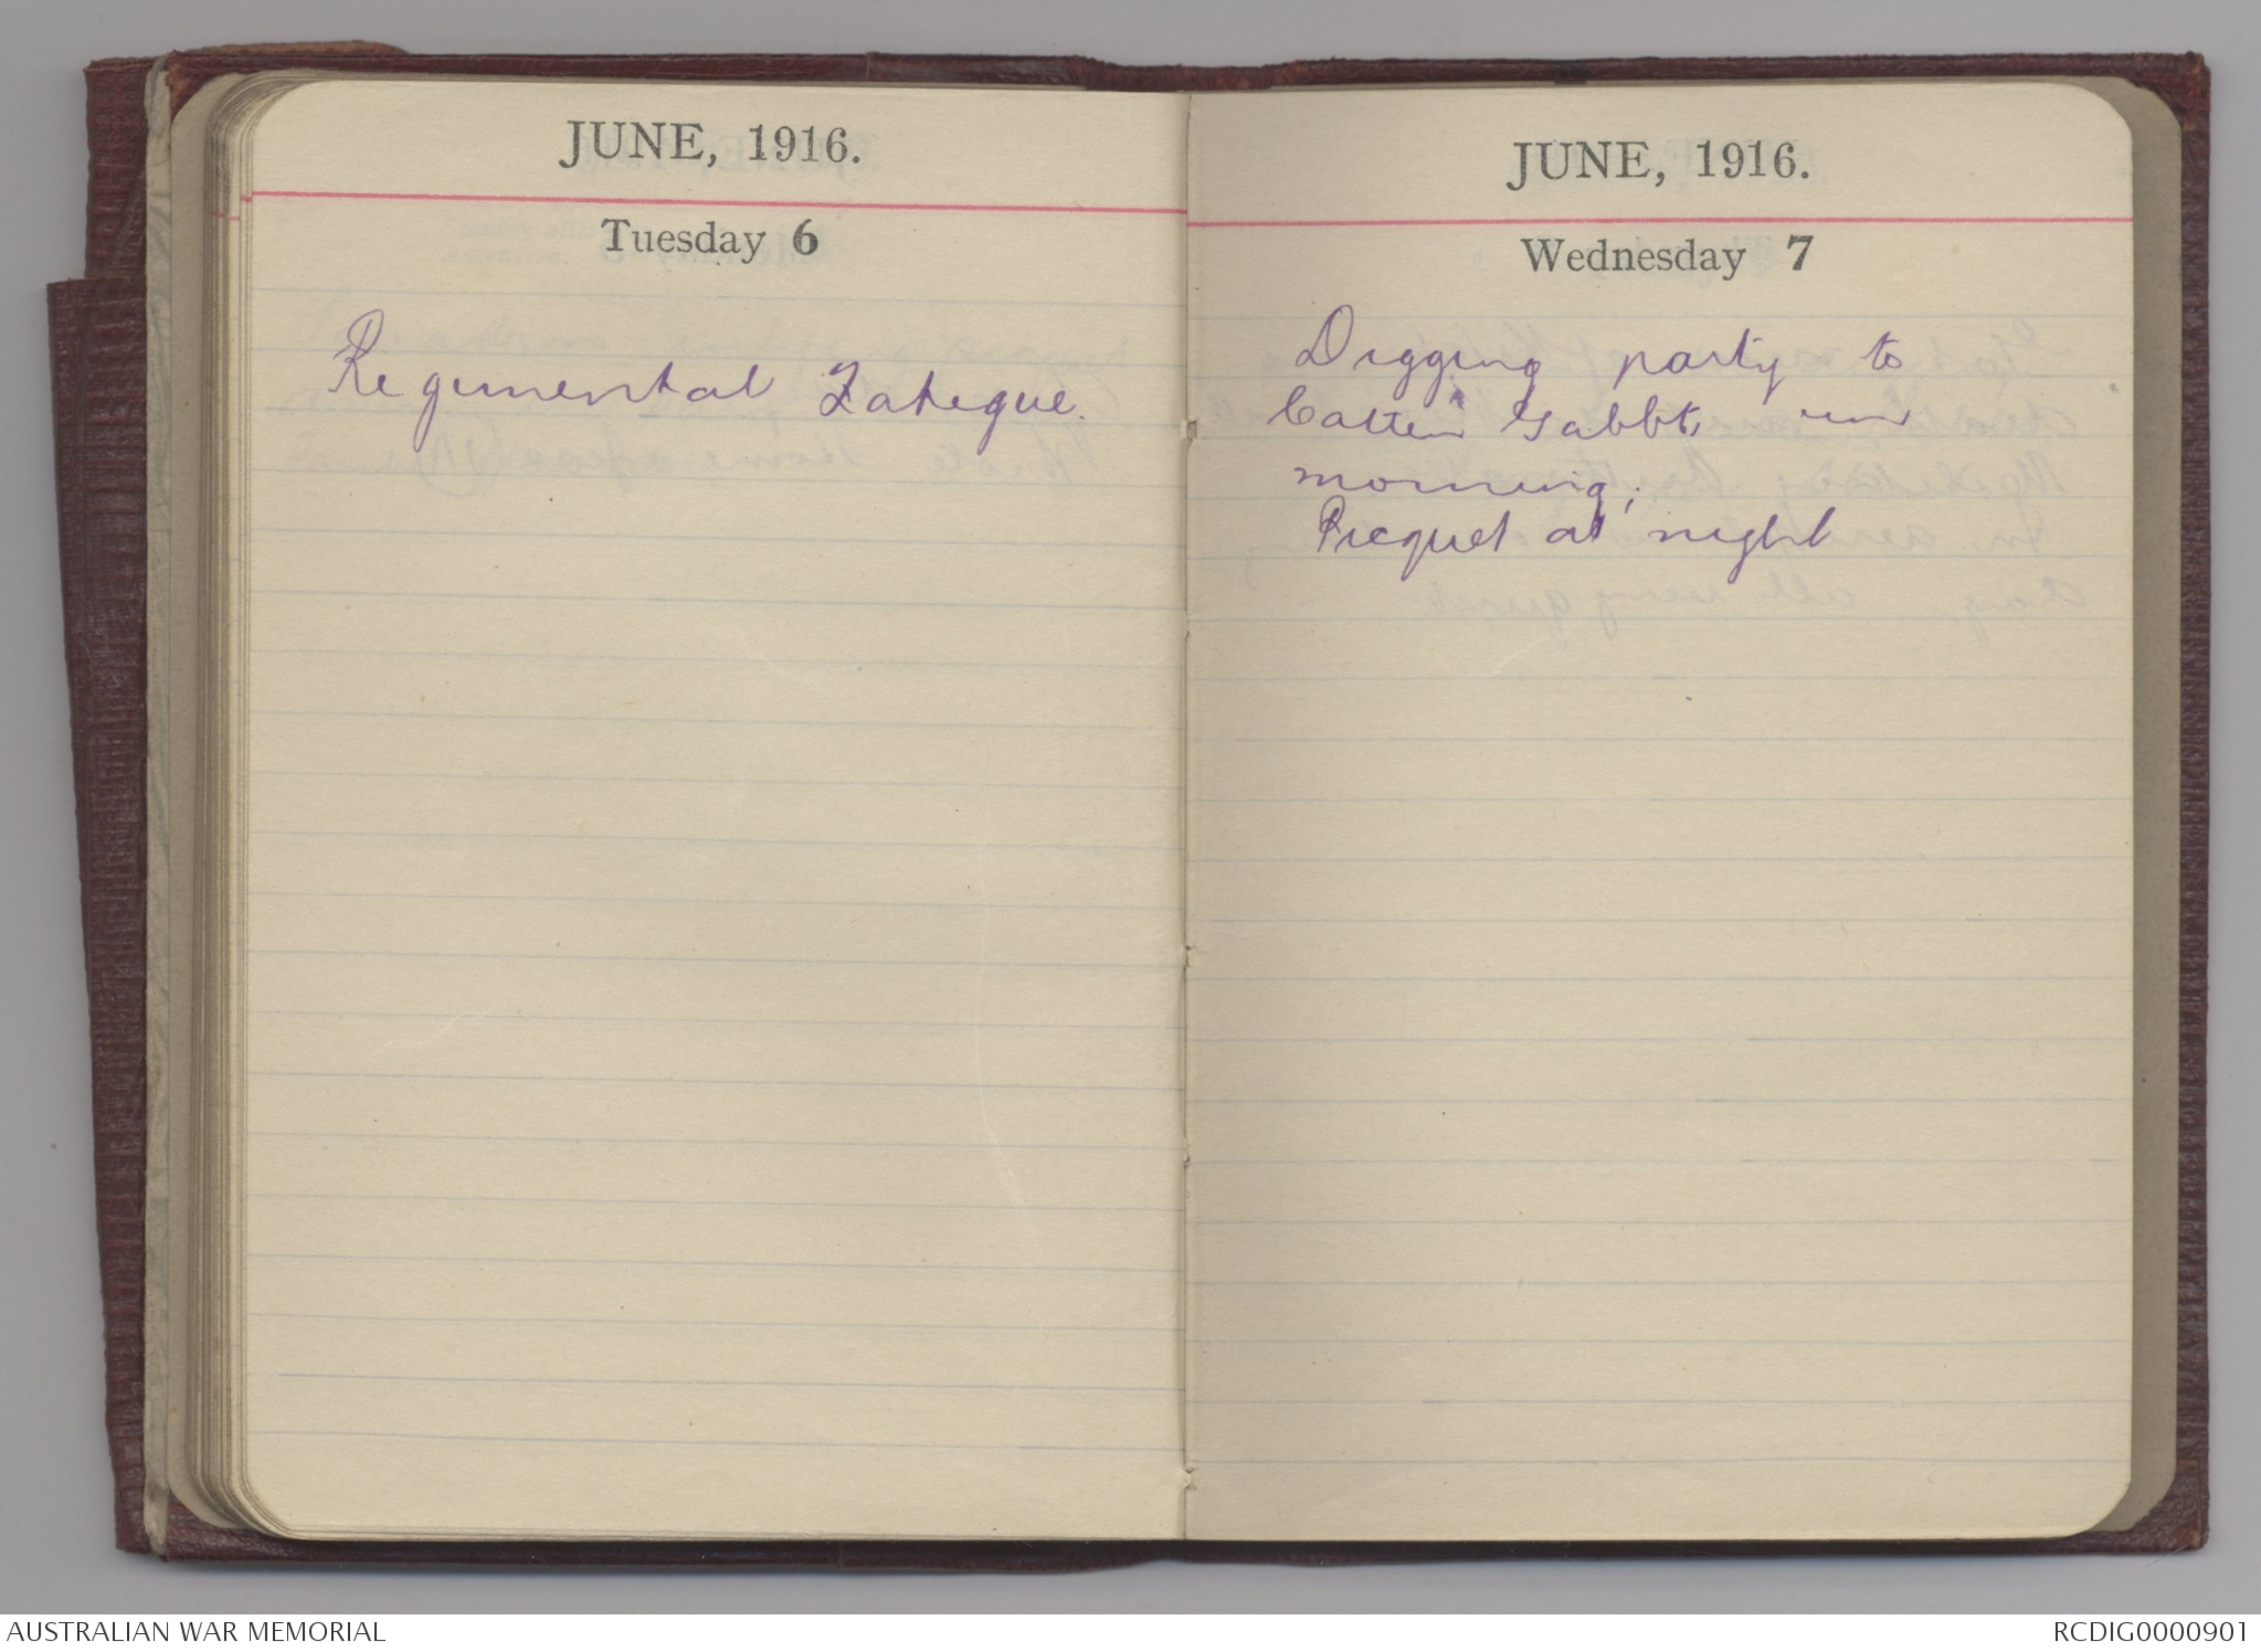 JUNE, 1916.
Tuesday 6
Regimental Fatigue.
JUNE, 1916.
Wednesday 7
Digging party to
in
morning;
Picquet at night
AUSTRALIAN WAR MEMORIAL
RCDIG0000901